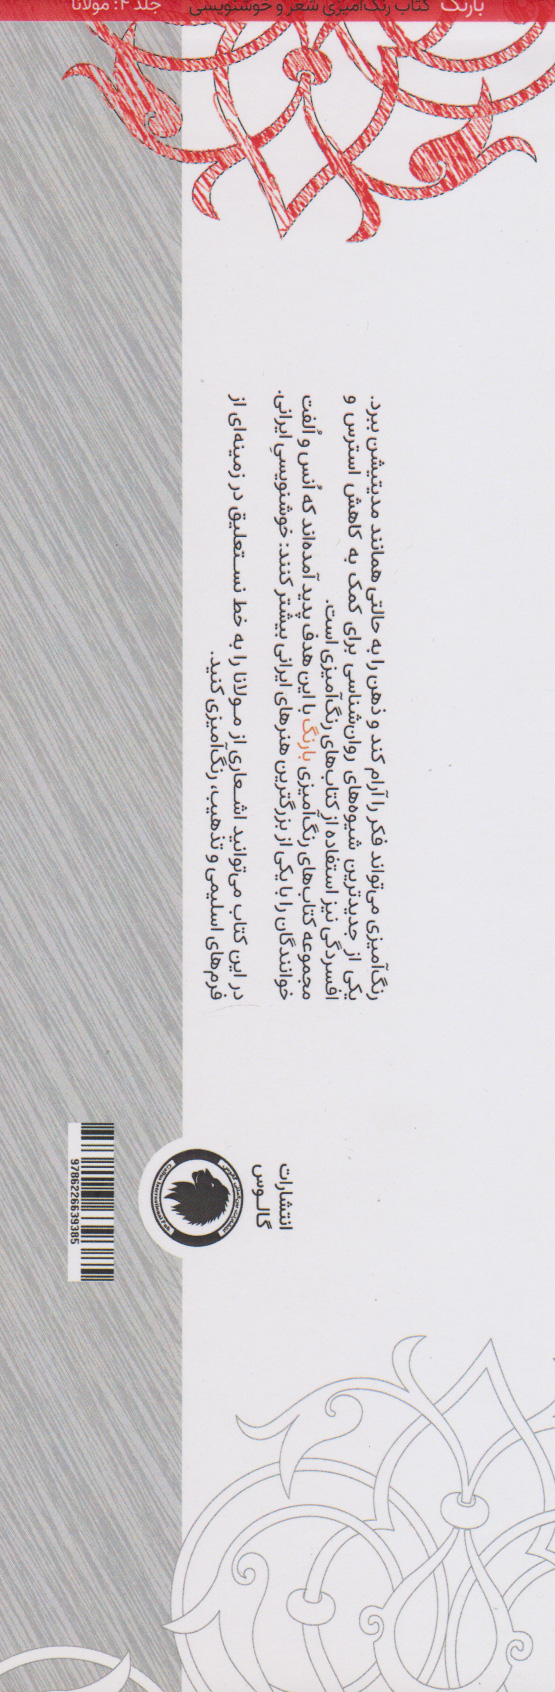 بارنگ کتاب رنگ‌آمیزی شعر و خوشنویسی جلد ۴: مولانا
رنگ‌آمیزی می‌تواند فکر را آرام کند و ذهن را به حالتی همانند مدیتیشن ببرد.
یکی از جدیدترین شیوه‌های روان‌شناسی برای کمک به کاهش استرس و
افسردگی نیز استفاده از کتاب‌های رنگ‌آمیزی است.
مجموعه کتاب‌های رنگ‌آمیزی بارنگ با این هدف پدید آمده‌اند که اُنس و اُلفت
خوانندگان را با یکی از بزرگترین هنرهای ایرانی بیشتر کنند: خوشنویسیِ ایرانی.
در این کتاب می‌توانید اشعاری از مولانا را به خط نستعلیق در زمینه‌ای از
فرم‌های اسلیمی و تذهیب، رنگ‌آمیزی کنید.
انتشارات
گالوس
9786226639385